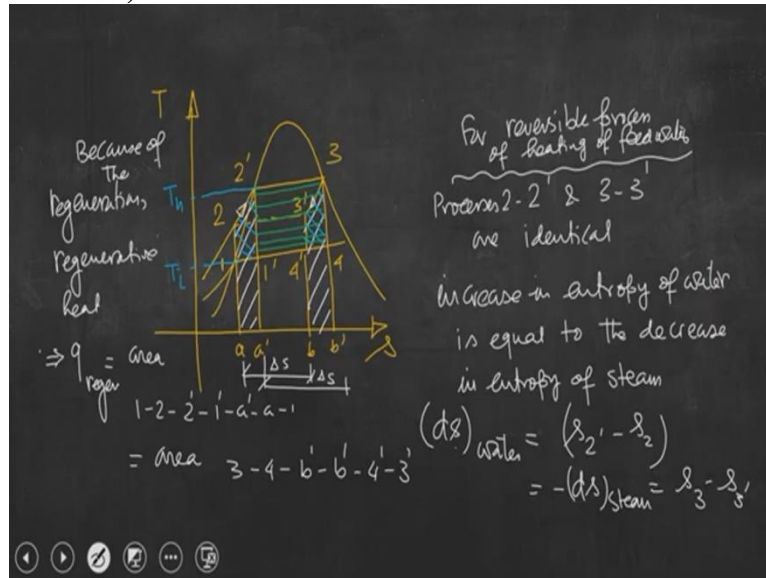 Because of
the
Regeneration,
regenerative
heat
⇒ q regen = area
1-2-2'-1'-a'-a-1
= area 3-4-b'-b'-4'-3'
T
2'
3
Th
2
3'
TL
1
1'
4'
4
a
a'
b
b'
s
Δs
Δs
For reversible process
of heating of feedwater
Processes 2-2' & 3-3'
are identical
increase in entropy of water
is equal to the decrease
in entropy of steam
(ds) water = (s2' - s2)
= -(ds) steam = s3 - s3'